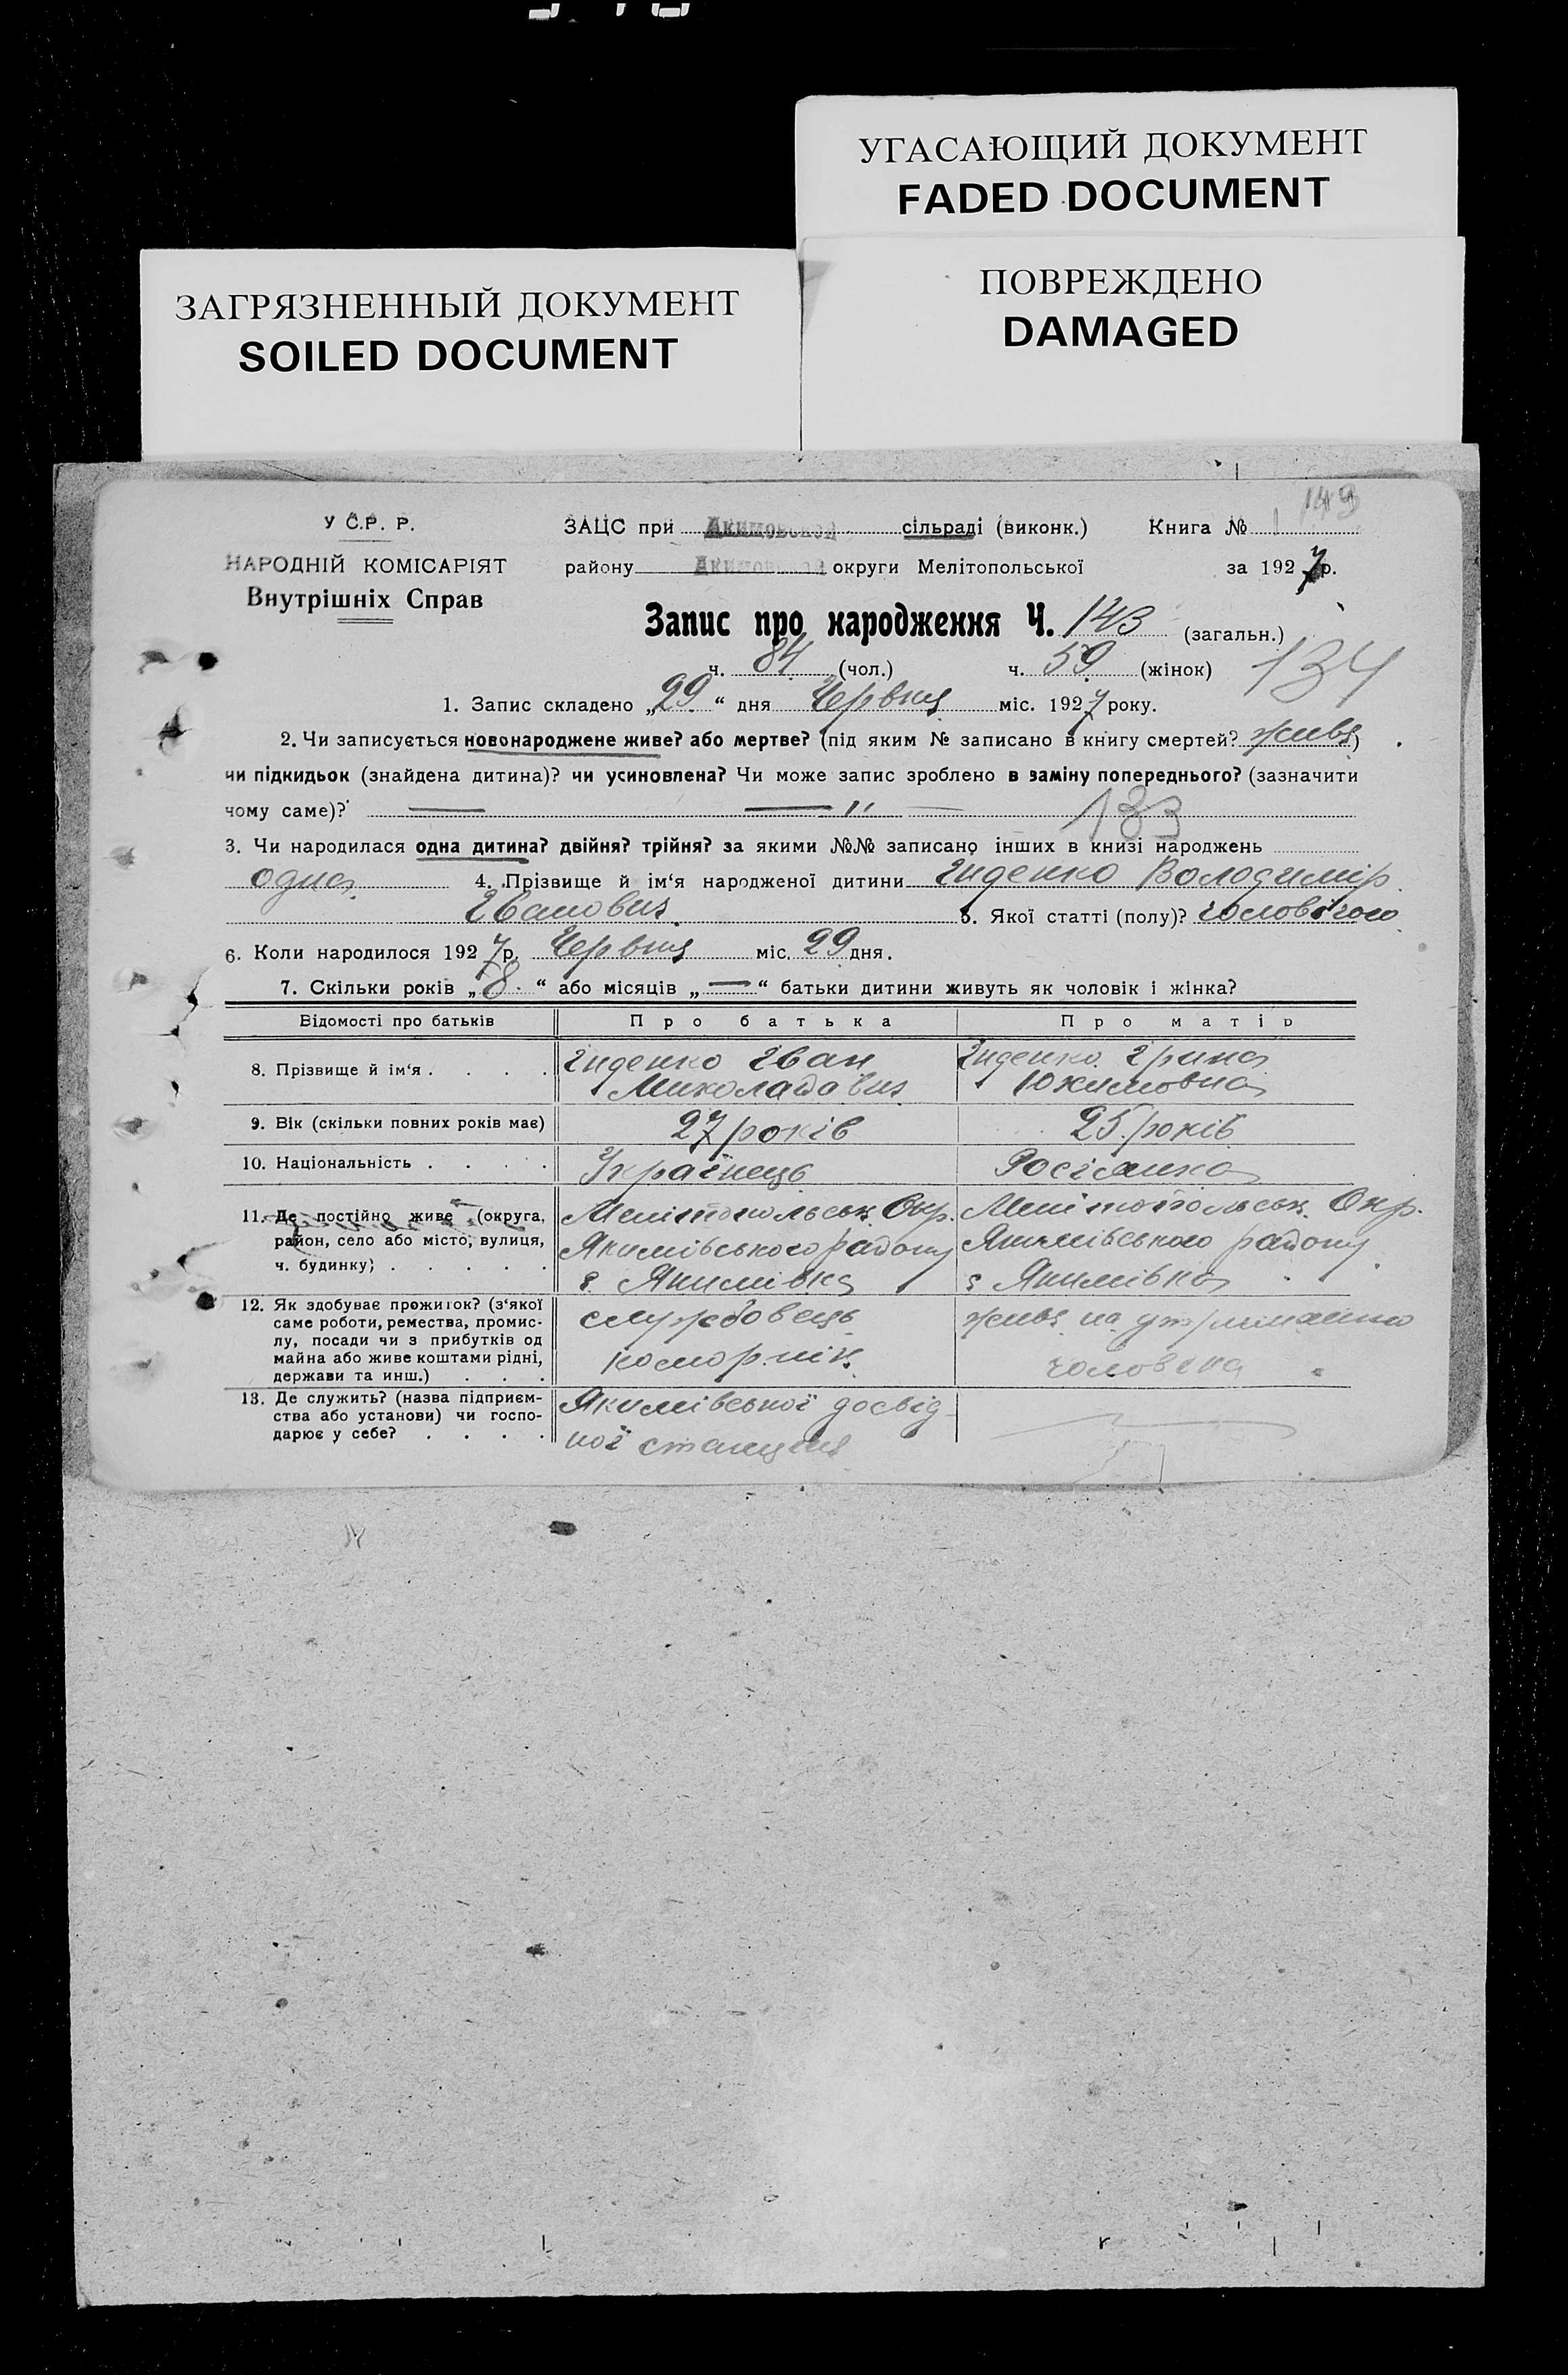 УГАСАЮЩИЙ ДОКУМЕНТ
FADED DOCUMENT
ЗАГРЯЗНЕННЫЙ ДОКУМЕНТ
SOILED DOCUMENT
ПОВРЕЖДЕНО
DAMAGED
149
У С.Р. Р.
ЗАЦС при Акимовской сільраді (виконк.) Книга №
НАРОДНІЙ КОМІСАРІЯТ
Внутрішніх Справ
району Акимовской округи Мелітопольської за 1927 р.
Запис про народження Ч. 143 (загальн.)
ч. 84 (чол.) ч. 59 (жінок) 134
1. Запис складено „29“ дня Червня міс. 1927 року.
2. Чи записується новонароджене живе? або мертве? (під яким № записано в книгу смертей? живе)
чи підкидьок (знайдена дитина)? чи усиновлена? Чи може запис зроблено в заміну попереднього? (зазначити
чому саме)? — — " — 133
3. Чи народилася одна дитина? двійня? трійня? за якими №№ записано інших в книзі народжень
одна 4. Прізвище й ім‘я народженої дитини Гиденко Володимір
Іванович 5. Якої статті (полу)? чоловічого
6. Коли народилося 1927 р. Червня міс. 29 дня.
7. Скільки років „8“ або місяців „—“ батьки дитини живуть як чоловік і жінка?
Відомості про батьків Про батька Про матір
8. Прізвище й ім‘я . . . . Гиденко Іван Гиденко Ірина
Миколайович Юхимовна
9. Вік (скільки повних років має) 27 років 25 років
10. Національність . . . . Українець Росіянка
11. Де постійно живе (округа, Мелітопольськ. Окр. Мелітопольськ. Окр.
район, село або місто, вулиця, Якимівського району Якимівського району
ч. будинку) . . . . . с. Якимівка с. Якимівка
12. Як здобуває прожиток? (з‘якої
саме роботи, ремества, промис- службовець живе на утриманню
лу, посади чи з прибутків од
майна або живе коштами рідні, коморник чоловіка
держави та инш.) . . .
13. Де служить? (назва підприєм- Якимівської дослід-
ства або установи) чи госпо- ної станція
дарює у себе? . . . .